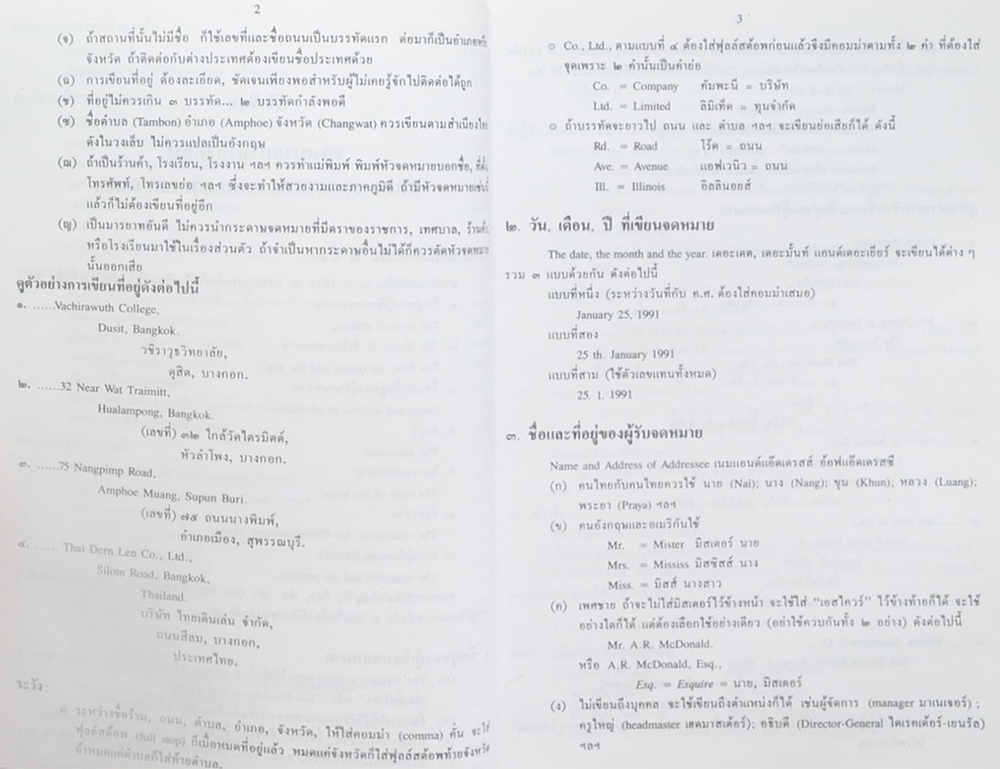 2
(จ) ถ้าสถานที่นั้นไม่มีชื่อ ก็ใช้เลขที่และชื่อถนนเป็นบรรทัดแรก ต่อมาก็เป็นอำเภอหรือ
จังหวัด ถ้าติดต่อกับต่างประเทศต้องเขียนชื่อประเทศด้วย
(ฉ) การเขียนที่อยู่ ต้องละเอียด, ชัดเจนเพียงพอสำหรับผู้ไม่เคยรู้จักไปติดต่อได้ถูก
(ช) ที่อยู่ไม่ควรเกิน ๓ บรรทัด... ๒ บรรทัดกำลังพอดี
(ซ) ชื่อตำบล (Tambon) อำเภอ (Amphoe) จังหวัด (Changwat) ควรเขียนตามสำเนียงไทย
ดังในวงเล็บ ไม่ควรแปลเป็นอังกฤษ
(ฌ) ถ้าเป็นร้านค้า, โรงเรียน, โรงงาน ฯลฯ ควรทำแม่พิมพ์ พิมพ์หัวจดหมายบอกชื่อ, ที่ตั้ง
โทรศัพท์, โทรเลขย่อ ฯลฯ ซึ่งจะทำให้สวยงามและภาคภูมิดี ถ้ามีหัวจดหมายเช่นนี้
แล้วก็ไม่ต้องเขียนที่อยู่อีก
(ญ) เป็นมารยาทอันดี ไม่ควรนำกระดาษจดหมายที่มีตราของราชการ, เทศบาล, ร้านค้า
หรือโรงเรียนมาใช้ในเรื่องส่วนตัว ถ้าจำเป็นหากระดาษอื่นไม่ได้ก็ควรตัดหัวจดหมาย
นั้นออกเสีย
ดูตัวอย่างการเขียนที่อยู่ดังต่อไปนี้
๑. ......Vachirawuth College,
Dusit, Bangkok.
วชิราวุธวิทยาลัย,
ดุสิต, บางกอก.
๒. ......32 Near Wat Traimitt,
Hualampong, Bangkok.
(เลขที่) ๓๒ ใกล้วัดไตรมิตต์,
หัวลำโพง, บางกอก.
๓. ......75 Nangpimp Road,
Amphoe Muang, Supun Buri.
(เลขที่) ๗๕ ถนนนางพิมพ์,
อำเภอเมือง, สุพรรณบุรี.
๔. ...... Thai Dern Len Co., Ltd.,
Silom Road, Bangkok,
Thailand.
บริษัท ไทยเดินเล่น จำกัด,
ถนนสีลม, บางกอก,
ประเทศไทย.
ระวัง:
ระหว่างชื่อร้าน, ถนน, ตำบล, อำเภอ, จังหวัด, ให้ใส่คอมม่า (comma) คั่น จะใส่
ฟุลล์สต้อพ (full stop) ก็เมื่อหมดที่อยู่แล้ว หมดแค่จังหวัดก็ใส่ฟุลล์สต้อพท้ายจังหวัด
ถ้าหมดแค่ตำบลก็ใส่ท้ายตำบล.
3
๐ Co., Ltd., ตามแบบที่ ๔ ต้องใส่ฟุลล์สต้อพก่อนแล้วจึงมีคอมม่าตามทั้ง ๒ คำ ที่ต้องใส่
จุดเพราะ ๒ คำนั้นเป็นคำย่อ
Co. = Company คัมพะนี = บริษัท
Ltd. = Limited ลิมิเต็ด = ทุนจำกัด
๐ ถ้าบรรทัดจะยาวไป ถนน และ ตำบล ฯลฯ จะเขียนย่อเสียก็ได้ ดังนี้
Rd. = Road โร้ด = ถนน
Ave. = Avenue แอฟเวนิว = ถนน
Ill. = Illinois อิลลินอยส์
๒. วัน, เดือน, ปี ที่เขียนจดหมาย
The date, the month and the year. เดอะเดต, เดอะมั้นท์ แอนด์เดอะเยียร์ จะเขียนได้ต่าง ๆ
รวม ๓ แบบด้วยกัน ดังต่อไปนี้
แบบที่หนึ่ง (ระหว่างวันที่กับ ค.ศ. ต้องใส่คอมม่าเสมอ)
January 25, 1991
แบบที่สอง
25 th. January 1991
แบบที่สาม (ใช้ตัวเลขแทนทั้งหมด)
25. 1. 1991
๓. ชื่อและที่อยู่ของผู้รับจดหมาย
Name and Address of Addressee เนมแอนด์แอ๊ดเดรสส์ อ๊อฟแอ๊ดเดรสซี
(ก) คนไทยกับคนไทยควรใช้ นาย (Nai); นาง (Nang); ขุน (Khun); หลวง (Luang);
พระยา (Praya) ฯลฯ
(ข) คนอังกฤษและอเมริกันใช้
Mr. = Mister มิสเตอร์ นาย
Mrs. = Mississ มิสซิสส์ นาง
Miss. = มิสส์ นางสาว
(ค) เพศชาย ถ้าจะไม่ใส่มิสเตอร์ไว้ข้างหน้า จะใช้ใส่ “เอสไควร์” ไว้ข้างท้ายก็ได้ จะใช้
อย่างใดก็ได้ แต่ต้องเลือกใช้อย่างเดียว (อย่าใช้ควบกันทั้ง ๒ อย่าง) ดังต่อไปนี้
Mr. A.R. McDonald.
หรือ A.R. McDonald, Esq.,
Esq. = Esquire = นาย, มิสเตอร์
(ง) ไม่เขียนถึงบุคคล จะใช้เขียนถึงตำแหน่งก็ได้ เช่นผู้จัดการ (manager มาเนเจอร์) ;
ครูใหญ่ (headmaster เฮดมาสเต้อร์); อธิบดี (Director-General ไดเรคเต้อร์-เยนรัล)
ฯลฯ